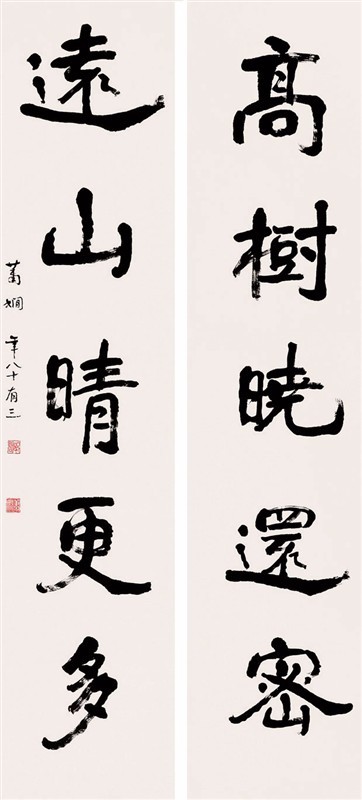 高樹曉還密
遠山晴更多
蕭嫻年八十有三